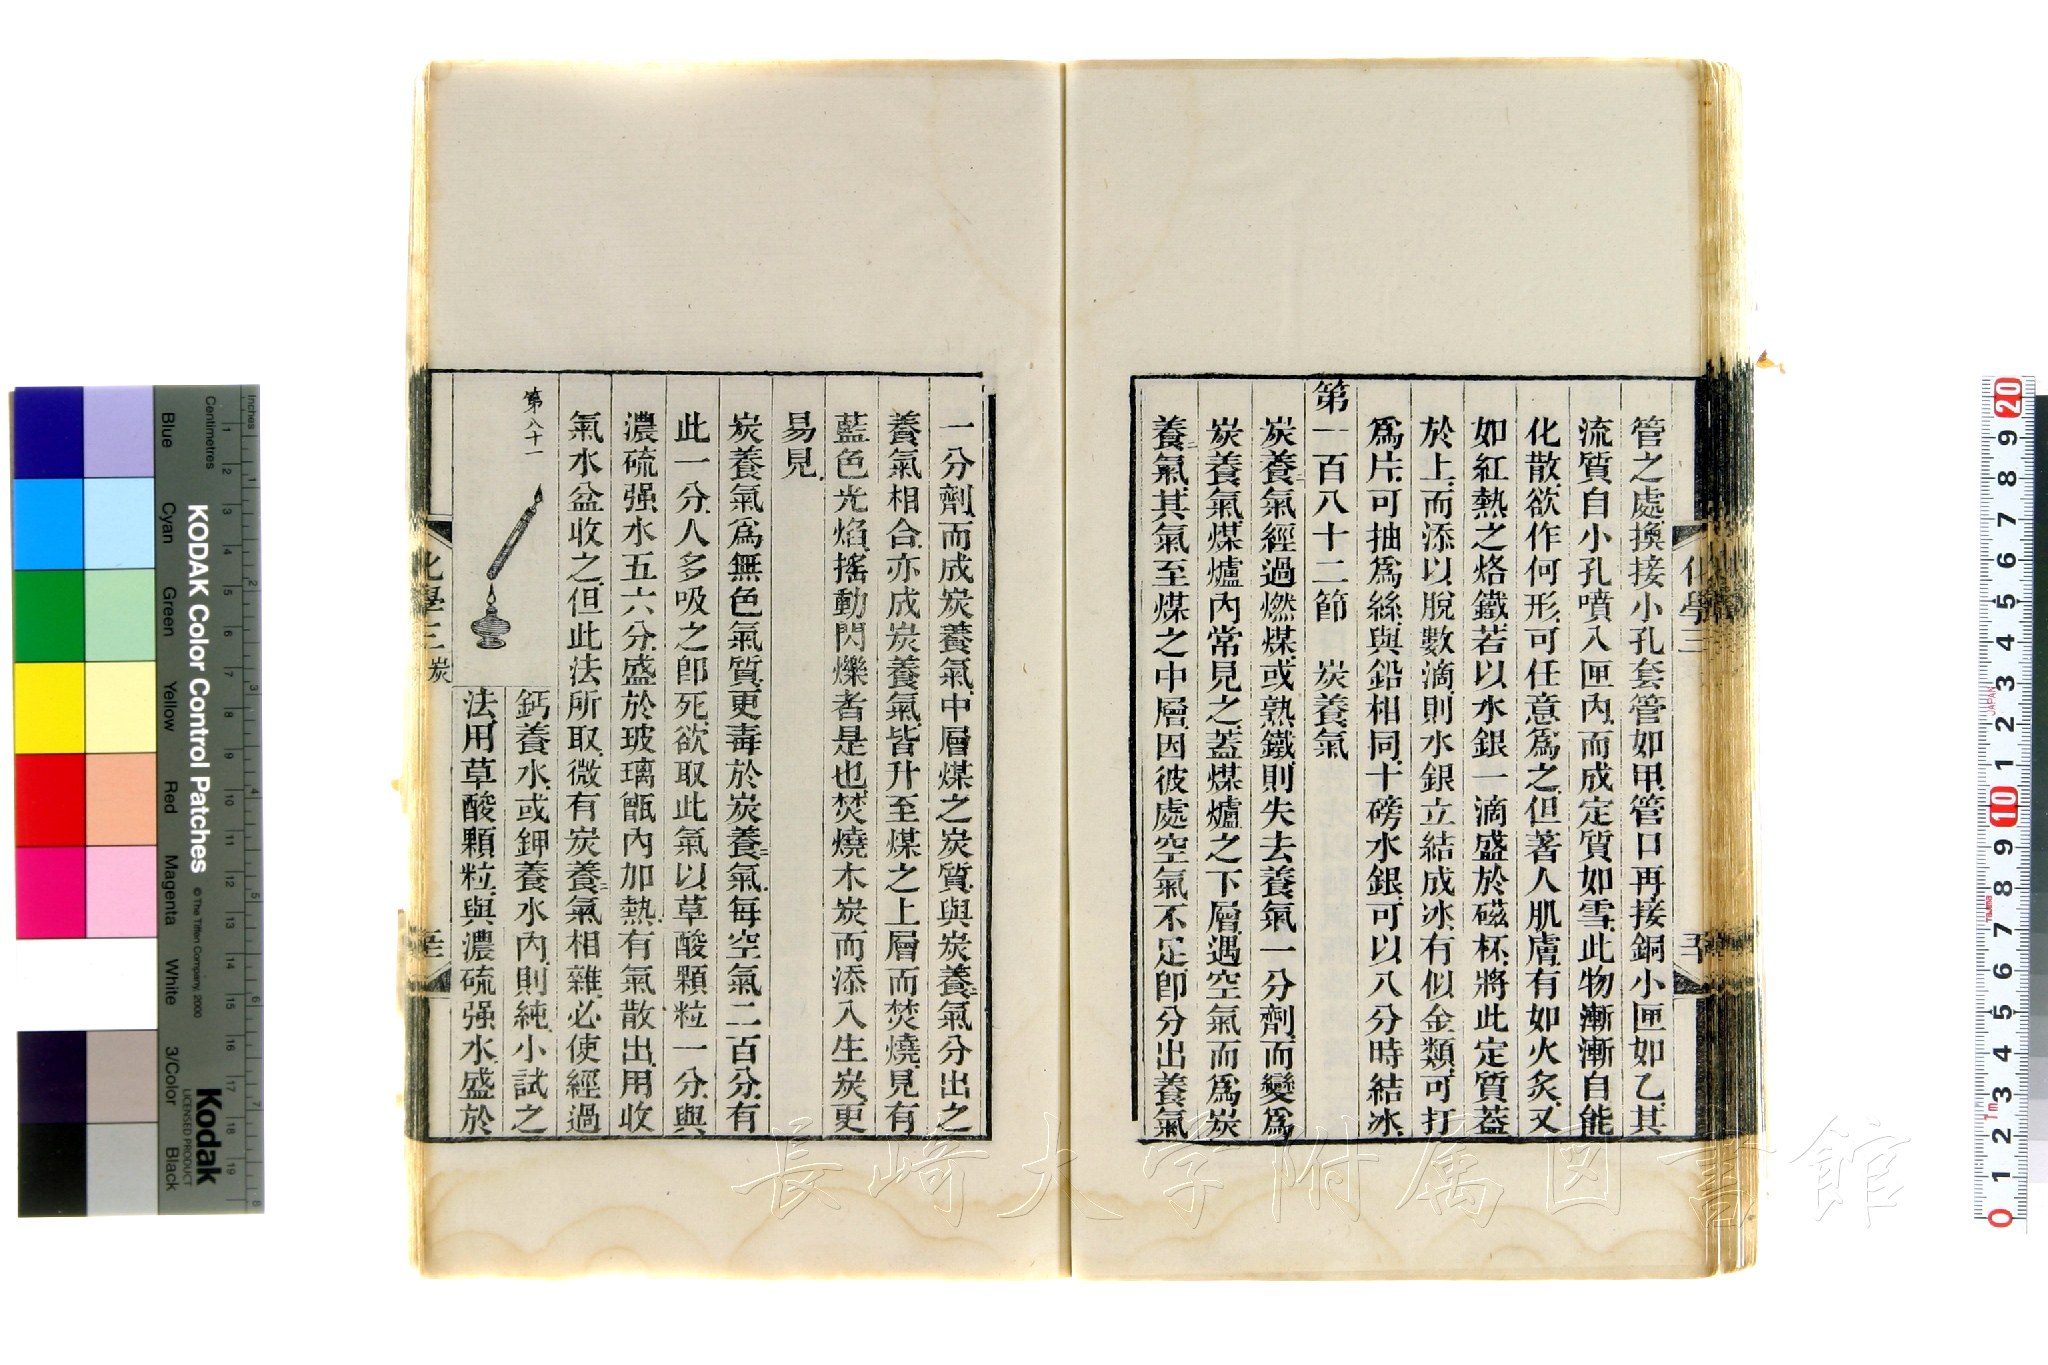 管之處換接小孔套管如甲管口再接銅小匣如乙其
流質自小孔噴入匣內而成定質如雪此物漸漸自能
化散欲作何形可任意爲之但著人肌膚有如火炙又
如紅熱之烙鐵若以水銀一滴盛於磁杯將此定質葢
於上而添以脫數滴則水銀立結成冰有似金類可打
爲片可抽爲絲與鉛相同十磅水銀可以八分時結冰
第一百八十二節 炭養氣
炭養二氣經過燃煤或熟鐵則失去養氣一分劑而變爲
炭養氣煤爐內常見之葢煤爐之下層遇空氣而爲炭
養二氣其氣至煤之中層因彼處空氣不足卽分出養氣
化學三
一分劑而成炭養氣中層煤之炭質與炭養二氣分出之
養氣相合亦成炭養氣皆升至煤之上層而焚燒見有
藍色光焰搖動閃爍者是也焚燒木炭而添入生炭更
易見
炭養氣爲無色氣質更毒於炭養二氣每空氣二百分有
此一分人多吸之卽死欲取此氣以草酸顆粒一分與
濃硫强水五六分盛於玻璃甑內加熱有氣散出用收
氣水盆收之但此法所取微有炭養二氣相雜必使經過
第八十一
鈣養水或鉀養水內則純小試之
法用草酸顆粒與濃硫强水盛於
化學三 炭
長崎大学附属図書館
Inches
Centimetres
KODAK Color Control Patches
© The Tiffen Company, 2000
Kodak
LICENSED PRODUCT
Blue
Cyan
Green
Yellow
Red
Magenta
White
3/Color
Black
JAPAN